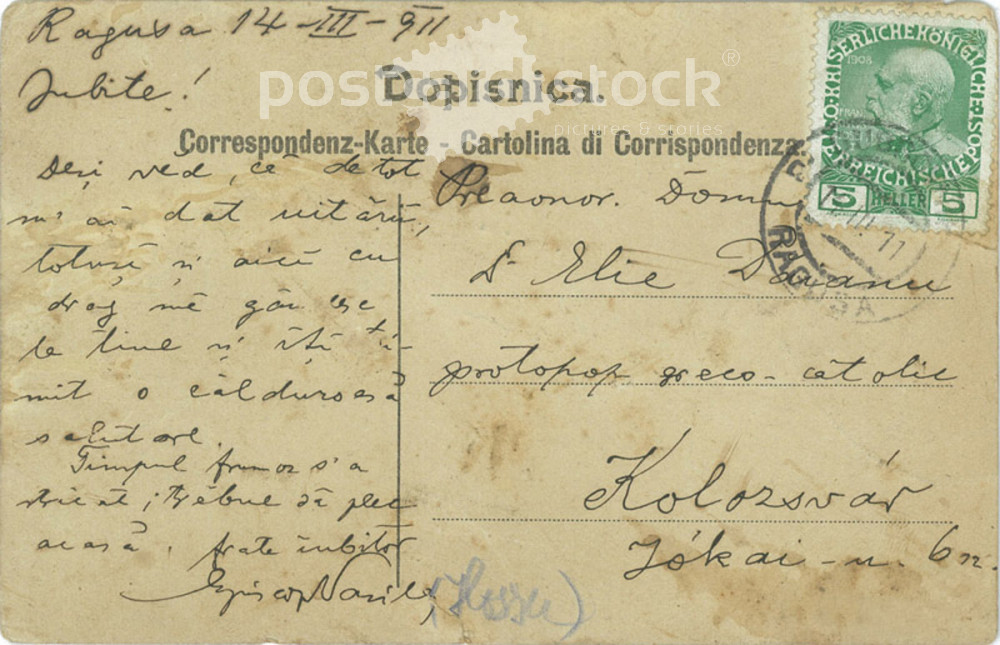 Ragusa 14-III-911
Iubite!
Deși văd, că de tot
m'ai dat uitării,
totuși și aici cu
drag mă gândesc
la tine și îți tri-
mit o călduroasă
salutare.
Timpul frumos s'a
stricat; trebue să plec
acasă. frate iubitor
Episcop Vasile
(Hossu)
Dopisnica.
Correspondenz-Karte - Cartolina di Corrispondenza.
Preaonor. Domnu
Dr Elie Dăianu
protopop greco-catolic
Kolozsvár
Jókai-u. 6 sz.
postcardstock®
pictures & stories
1908
5 HELLER 5
RAGUSA